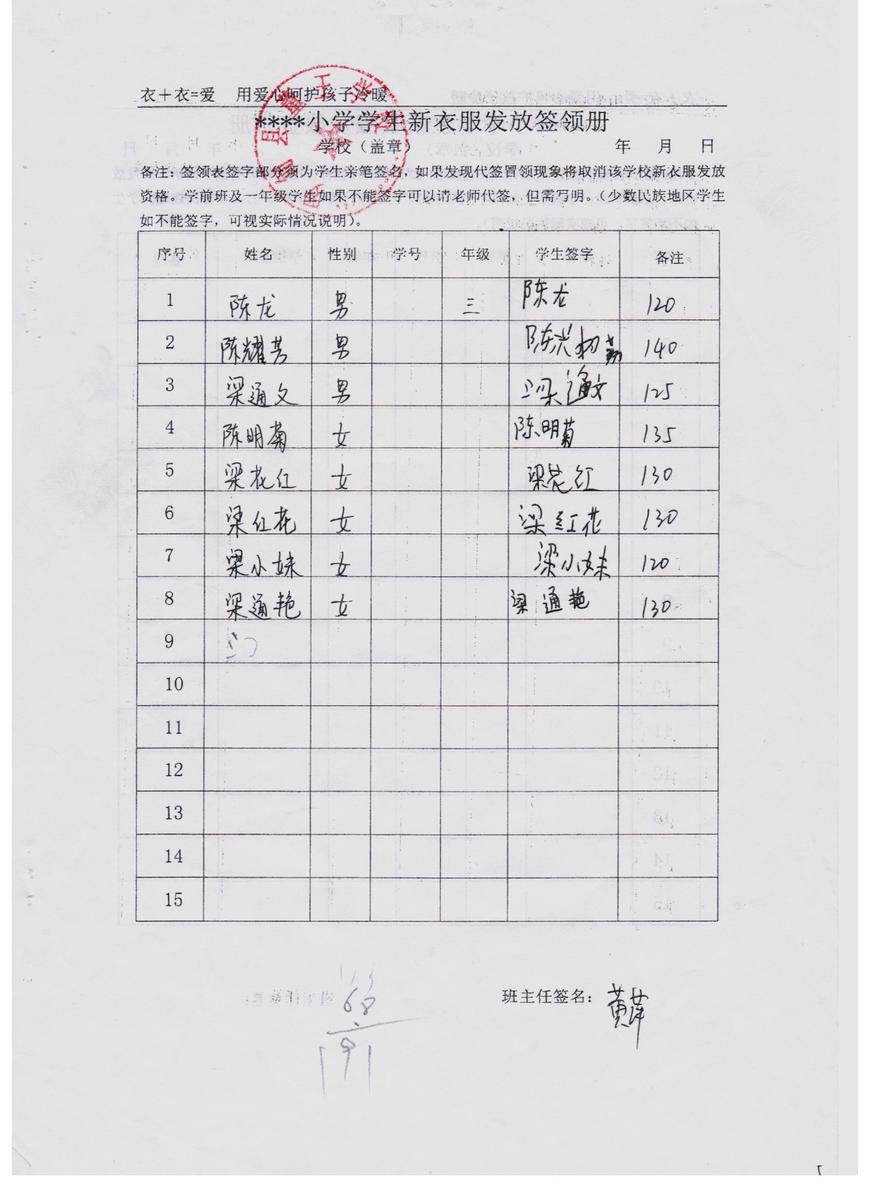 衣+衣=爱 用爱心呵护孩子冷暖
****小学学生新衣服发放签领册
学校（盖章） 年 月 日
备注：签领表签字部分须为学生亲笔签名，如果发现代签冒领现象将取消该学校新衣服发放
资格。学前班及一年级学生如果不能签字可以请老师代签，但需写明。（少数民族地区学生
如不能签字，可视实际情况说明）。
序号 姓名 性别 学号 年级 学生签字 备注
1 陈龙 男 三 陈龙 120
2 陈耀芳 男 140
3 梁通文 男 梁通文 125
4 陈明菊 女 陈明菊 135
5 梁花红 女 梁花红 130
6 梁红花 女 梁红花 130
7 梁小妹 女 梁小妹 120
8 梁通艳 女 梁通艳 130
9
10
11
12
13
14
15
班主任签名：黄萍
68